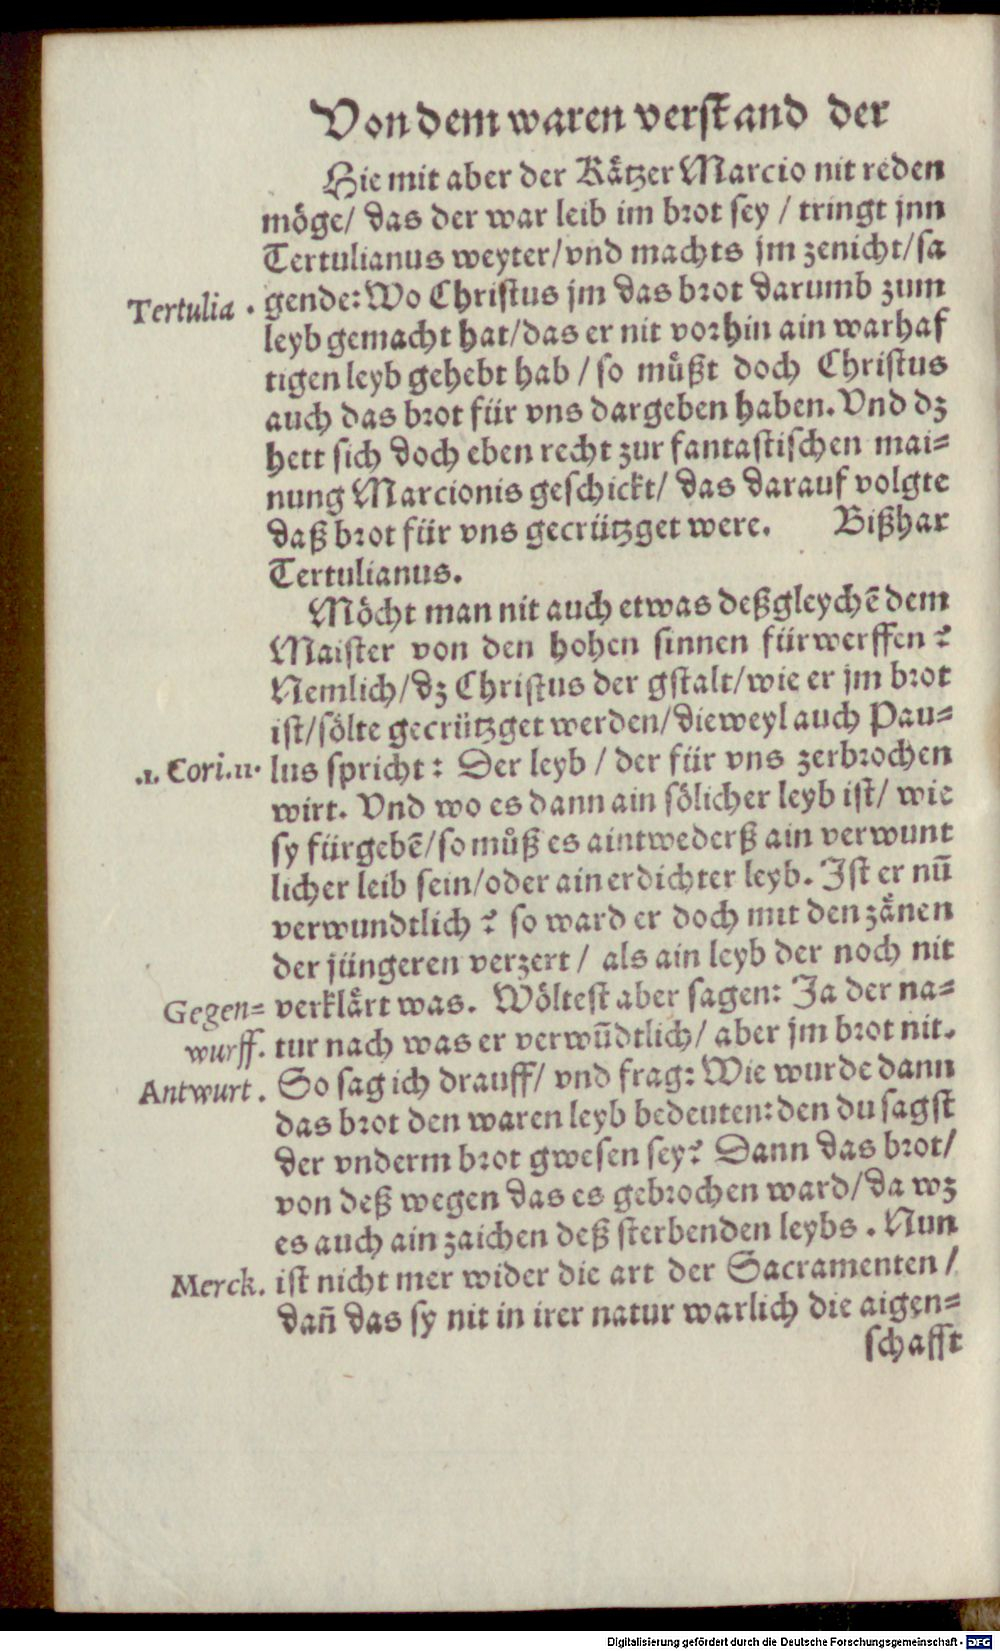 Von dem waren verstand der
Hie mit aber der Kåtzer Marcio nit reden
möge/ das der war leib im brot sey / tringt jnn
Tertulianus weyter/vnd machts jm zenicht/sa
Tertulia . gende: Wo Christus jm das brot darumb zum
leyb gemacht hat/das er nit vorhin ain warhaf
tigen leyb gehebt hab / so můßt doch Christus
auch das brot für vns dargeben haben. Vnd dz
hett sich doch eben recht zur fantastischen mai=
nung Marcionis geschickt/ das darauf volgte
daß brot für vns gecrützget were. Bißhar
Tertulianus.
Möcht man nit auch etwas deßgleychē dem
Maister von den hohen sinnen fürwerffen ?
Nemlich/dz Christus der gstalt/wie er jm brot
ist/sölte gecrützget werden/dieweyl auch Pau=
.1. Cori.11. lus spricht : Der leyb / der für vns zerbrochen
wirt. Vnd wo es dann ain sölicher leyb ist/ wie
sy fürgebē/so můß es aintwederß ain verwunt
licher leib sein/oder ain erdichter leyb. Ist er nū
verwundtlich ? so ward er doch mit den zånen
der jüngeren verzert / als ain leyb der noch nit
Gegen= verklårt was. Wöltest aber sagen: Ja der na=
wurff. tur nach was er verwūdtlich/ aber jm brot nit.
Antwurt. So sag ich drauff/ vnd frag: Wie wurde dann
das brot den waren leyb bedeuten: den du sagst
der vnderm brot gwesen sey? Dann das brot/
von deß wegen das es gebrochen ward/da wz
es auch ain zaichen deß sterbenden leybs . Nun
Merck. ist nicht mer wider die art der Sacramenten /
dañ das sy nit in irer natur warlich die aigen=
schafft
Digitalisierung gefördert durch die Deutsche Forschungsgemeinschaft - DFG